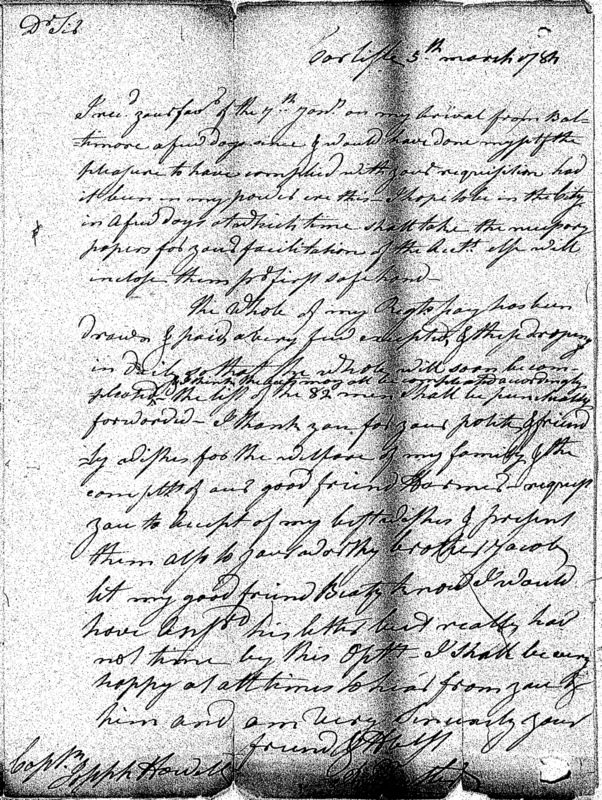 Dr Sir
Carlisle 5th march 1784
I recd your favr of the 7th Jany on my arival from Bal-
-timore a few days since & would have done myself the
pleasure to have complied with your requisition had
it been in my power ere this - I hope to be in the City
in a few days at which time shall take the nessesary
papers for your facilitation of the Acctts else will
inclose them pr first safe hand -
The Whole of my Regts pay has been
drawn & paid, a very few excepted, & these droping
in daily so that the whole will soon be com-
I think the boys may all be compleated accordingly
pleated - the list of the 82 men shall be punctually
forwarded - I thank you for your polite & friend
ly wishes for the welfare of my family & the
complts of our good friend - request
you to accept of my best wishes & present
them also to your worthy brother Jacob
let my good friend Beaty know I would
have ansrd his letter but really had
not time by this Optty - I shall be very
happy at all times to hear from you &
him and am Very Sincerely your
friend & Hble St
Captn
Joseph Howell